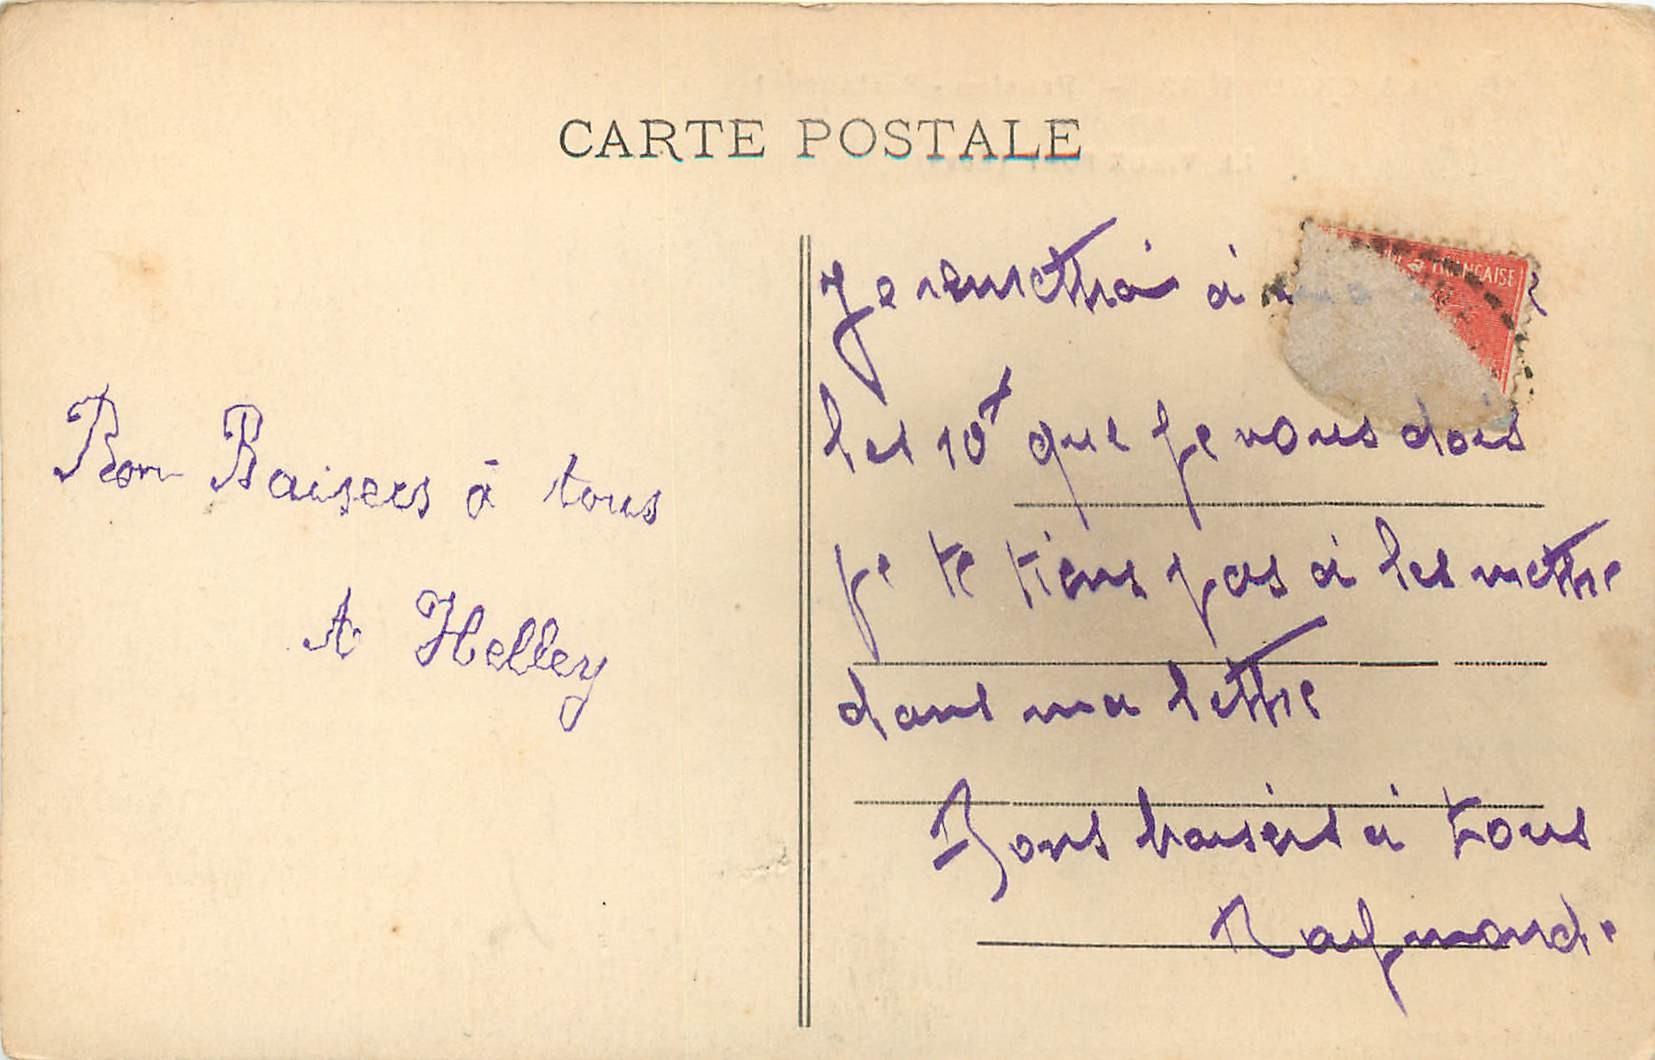 CARTE POSTALE
Bon Baisers à tous
A Helley
Je remettrai à
FRANÇAISE
les 10f que je vous dois
je te tiens pas à les mettre
dans ma lettre
Bons baisers à tous
Raymonde